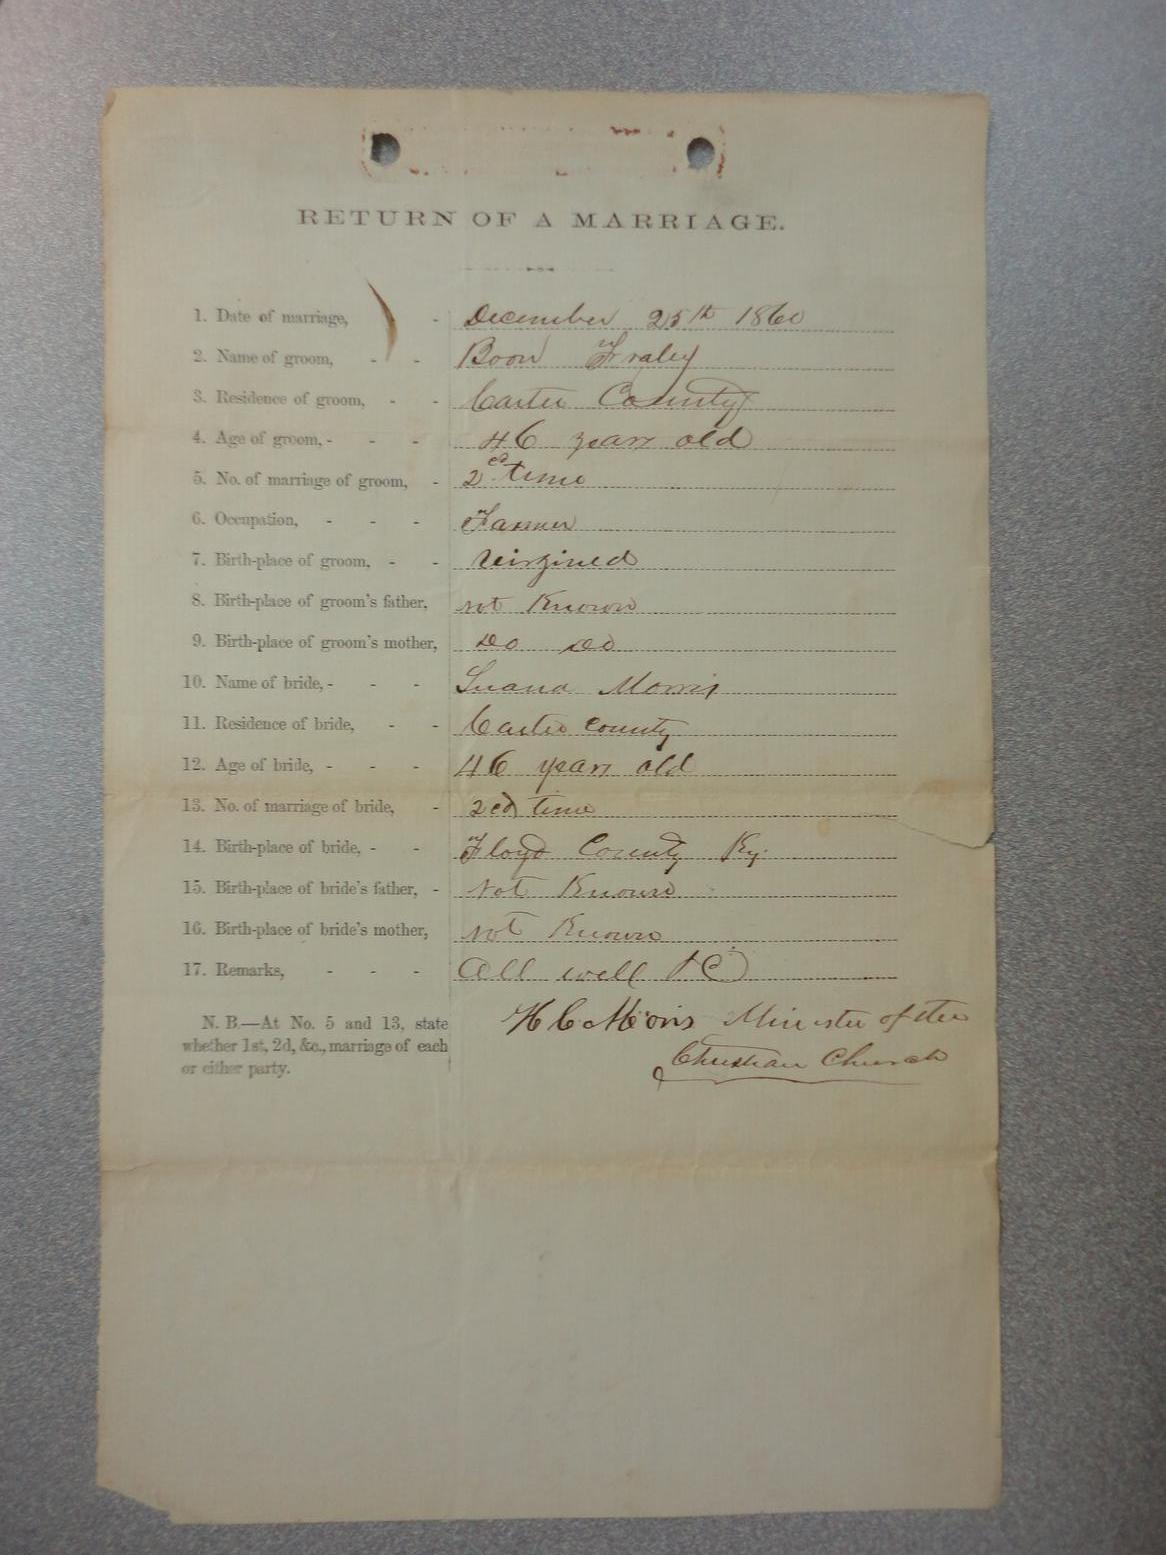 RETURN OF A MARRIAGE.
1. Date of marriage, - December 25th 1860
2. Name of groom, - - Boon Fraley
3. Residence of groom, - - Carter County
4. Age of groom, - - - 46 years old
5. No. of marriage of groom, - 2ed time
6. Occupation, - - - Farmer
7. Birth-place of groom, - - Virgined
8. Birth-place of groom's father, not Known
9. Birth-place of groom's mother, Do Do
10. Name of bride, - - - Luana Morris
11. Residence of bride, - - Carter County
12. Age of bride, - - - 46 years old
13. No. of marriage of bride, - 2ed time
14. Birth-place of bride, - - Floyd County Ky.
15. Birth-place of bride's father, - Not Known
16. Birth-place of bride's mother, not Known
17. Remarks, - - - All well
N. B.—At No. 5 and 13, state
whether 1st, 2d, &c., marriage of each
or either party.
H C Minister of the
Christian Church